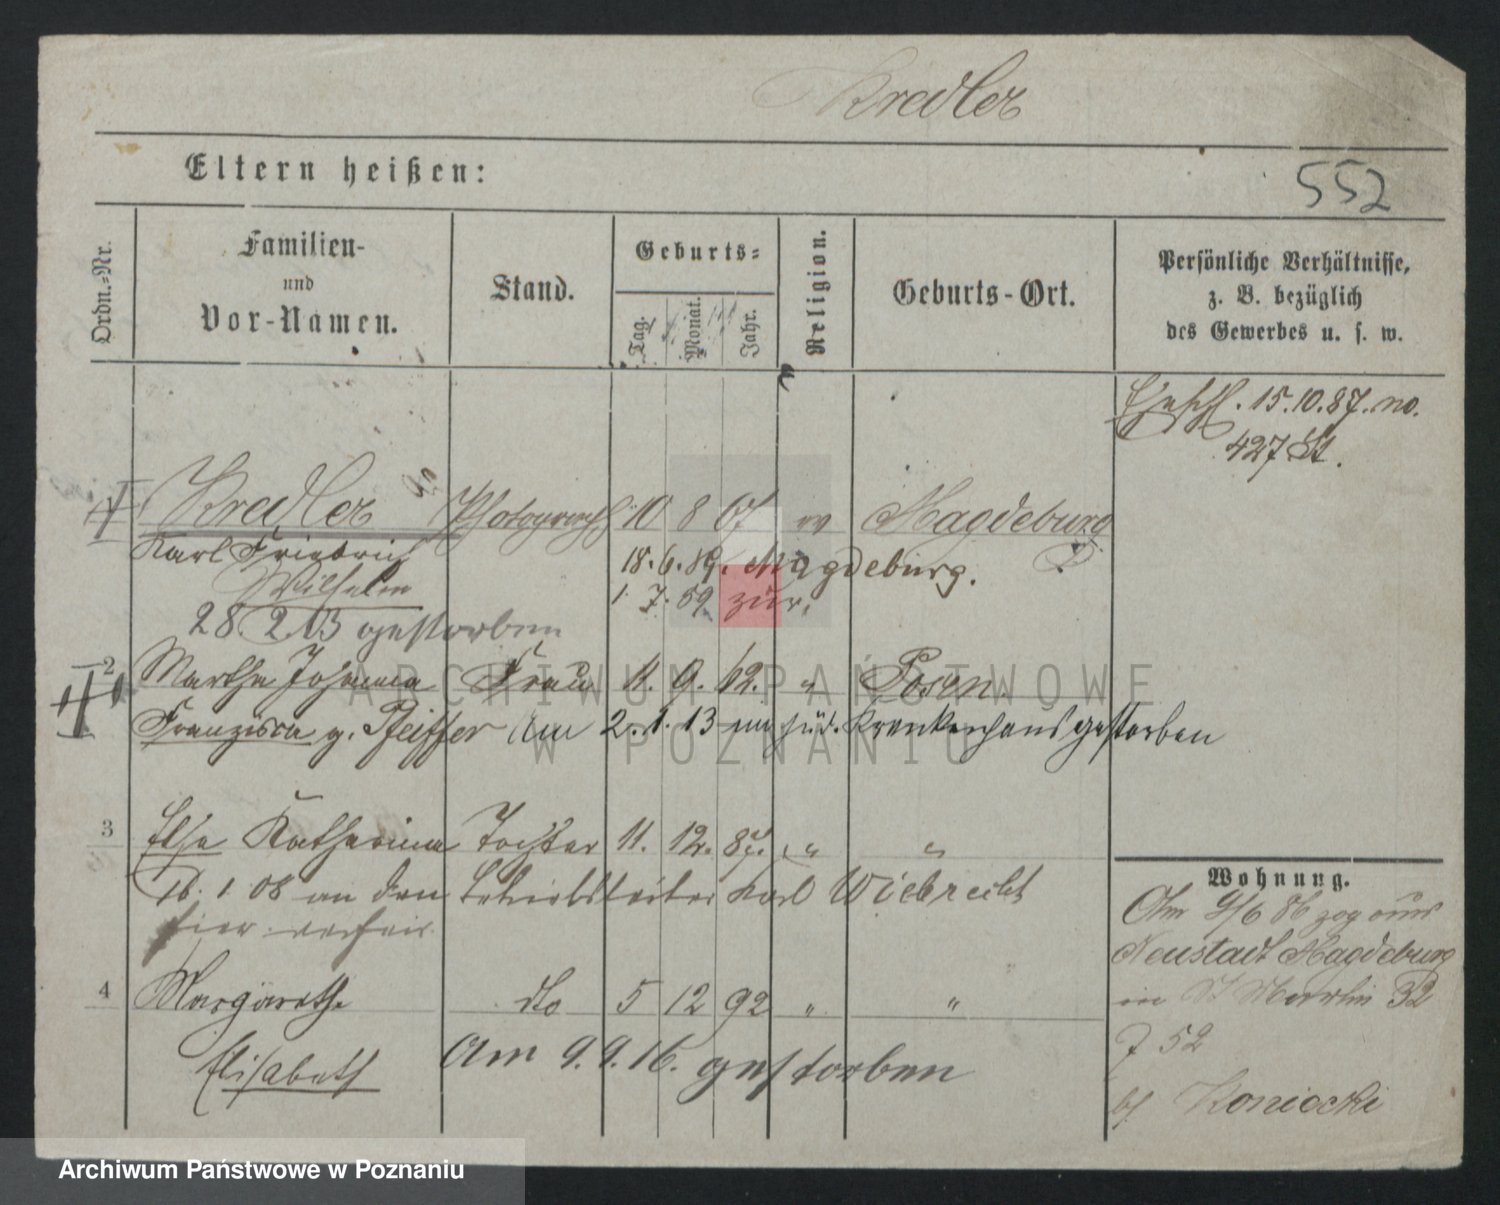 Kredler
Eltern heißen:
552
Ordn.-Nr.
Familien-
und
Vor-Namen.
Stand.
Geburts-
Tag.
Monat.
Jahr.
Religion.
Geburts-Ort.
Persönliche Verhältnisse,
z. B. bezüglich
des Gewerbes u. s. w.
Eheschl. 15.10.87. no.
427 St.
1 Kredler Photograph 10 8 67 ev Magdeburg
Karl Friedrich 18. 6. 89. Magdeburg.
Wilhelm 1. 7. 59 zur.
28. 2. 13 gestorben
2 Martha Johanna Frau 11. 9. 62. " Posen.
Franziska g. Pfeiffer Am 2. 1. 13 im jüd. Krankenhaus gestorben
ARCHIWUM PAŃSTWOWE
W POZNANIU
3 Else Katharina Tochter 11. 12. 87. " "
16. 1 08 an den Betriebsleiter Karl Wiebrecht
hier verheir.
4 Margarethe dto 5 12 92 " "
Elisabeth Am 9. 9. 16. gestorben
Wohnung.
Am 9/6 86 zog aus
Neustadt Magdeburg
in St Martin 32
7 52
bei Koniecki
Archiwum Państwowe w Poznaniu